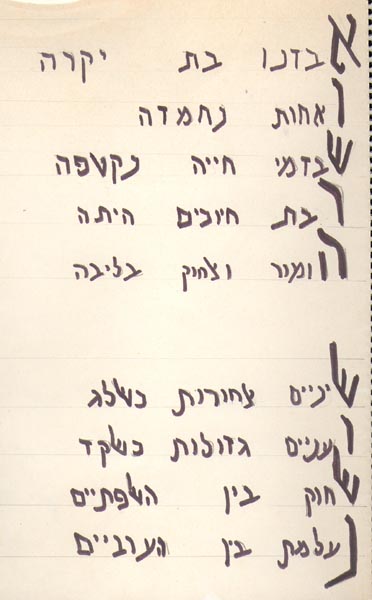 אבדנו בת יקרה
ואחות נחמדה
שבדמי חייה נקטפה
רבת חיוכים היתה
הומור וצחוק בליבה
שיניים צחורות כשלג
ועניים גדולות כשקד
שחוק בין השפתיים
נעלמת בין הערביים